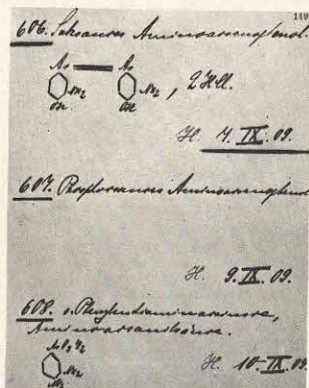 149
606. Salzsaures Aminoarsenophenol.
As As
NH2 NH2, 2HCl.
OH OH
H. 7. IX. 09.
607. Aminoarsenophenol
H. 9. IX. 09.
608. o. Phenylendiaminarsinsäure,
Aminoarsanilsäure.
NH2
NH2
H. 10. IX. 09.